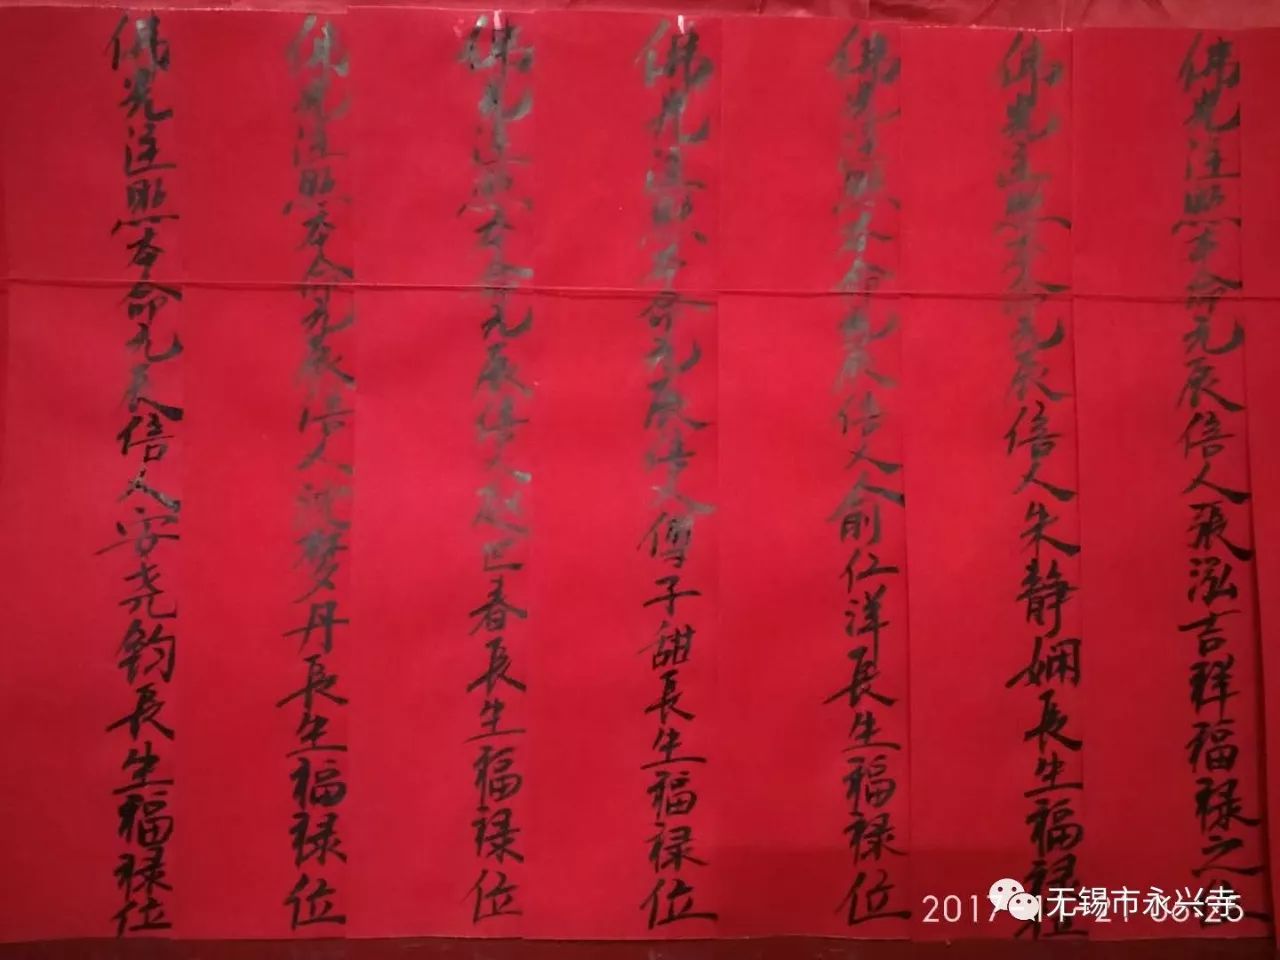 佛光注照本命元辰信人張泓吉祥福禄之位
佛光注照本命元辰信人朱静娴長生福禄位
佛光注照本命元辰信人俞仁洋長生福禄位
佛光注照本命元辰信人傅子甜長生福禄位
佛光注照本命元辰信人赵巴春長生福禄位
佛光注照本命元辰信人沈梦丹長生福禄位
佛光注照本命元辰信人安尧钧長生福禄位
2017-11-21 06:25
无锡市永兴寺